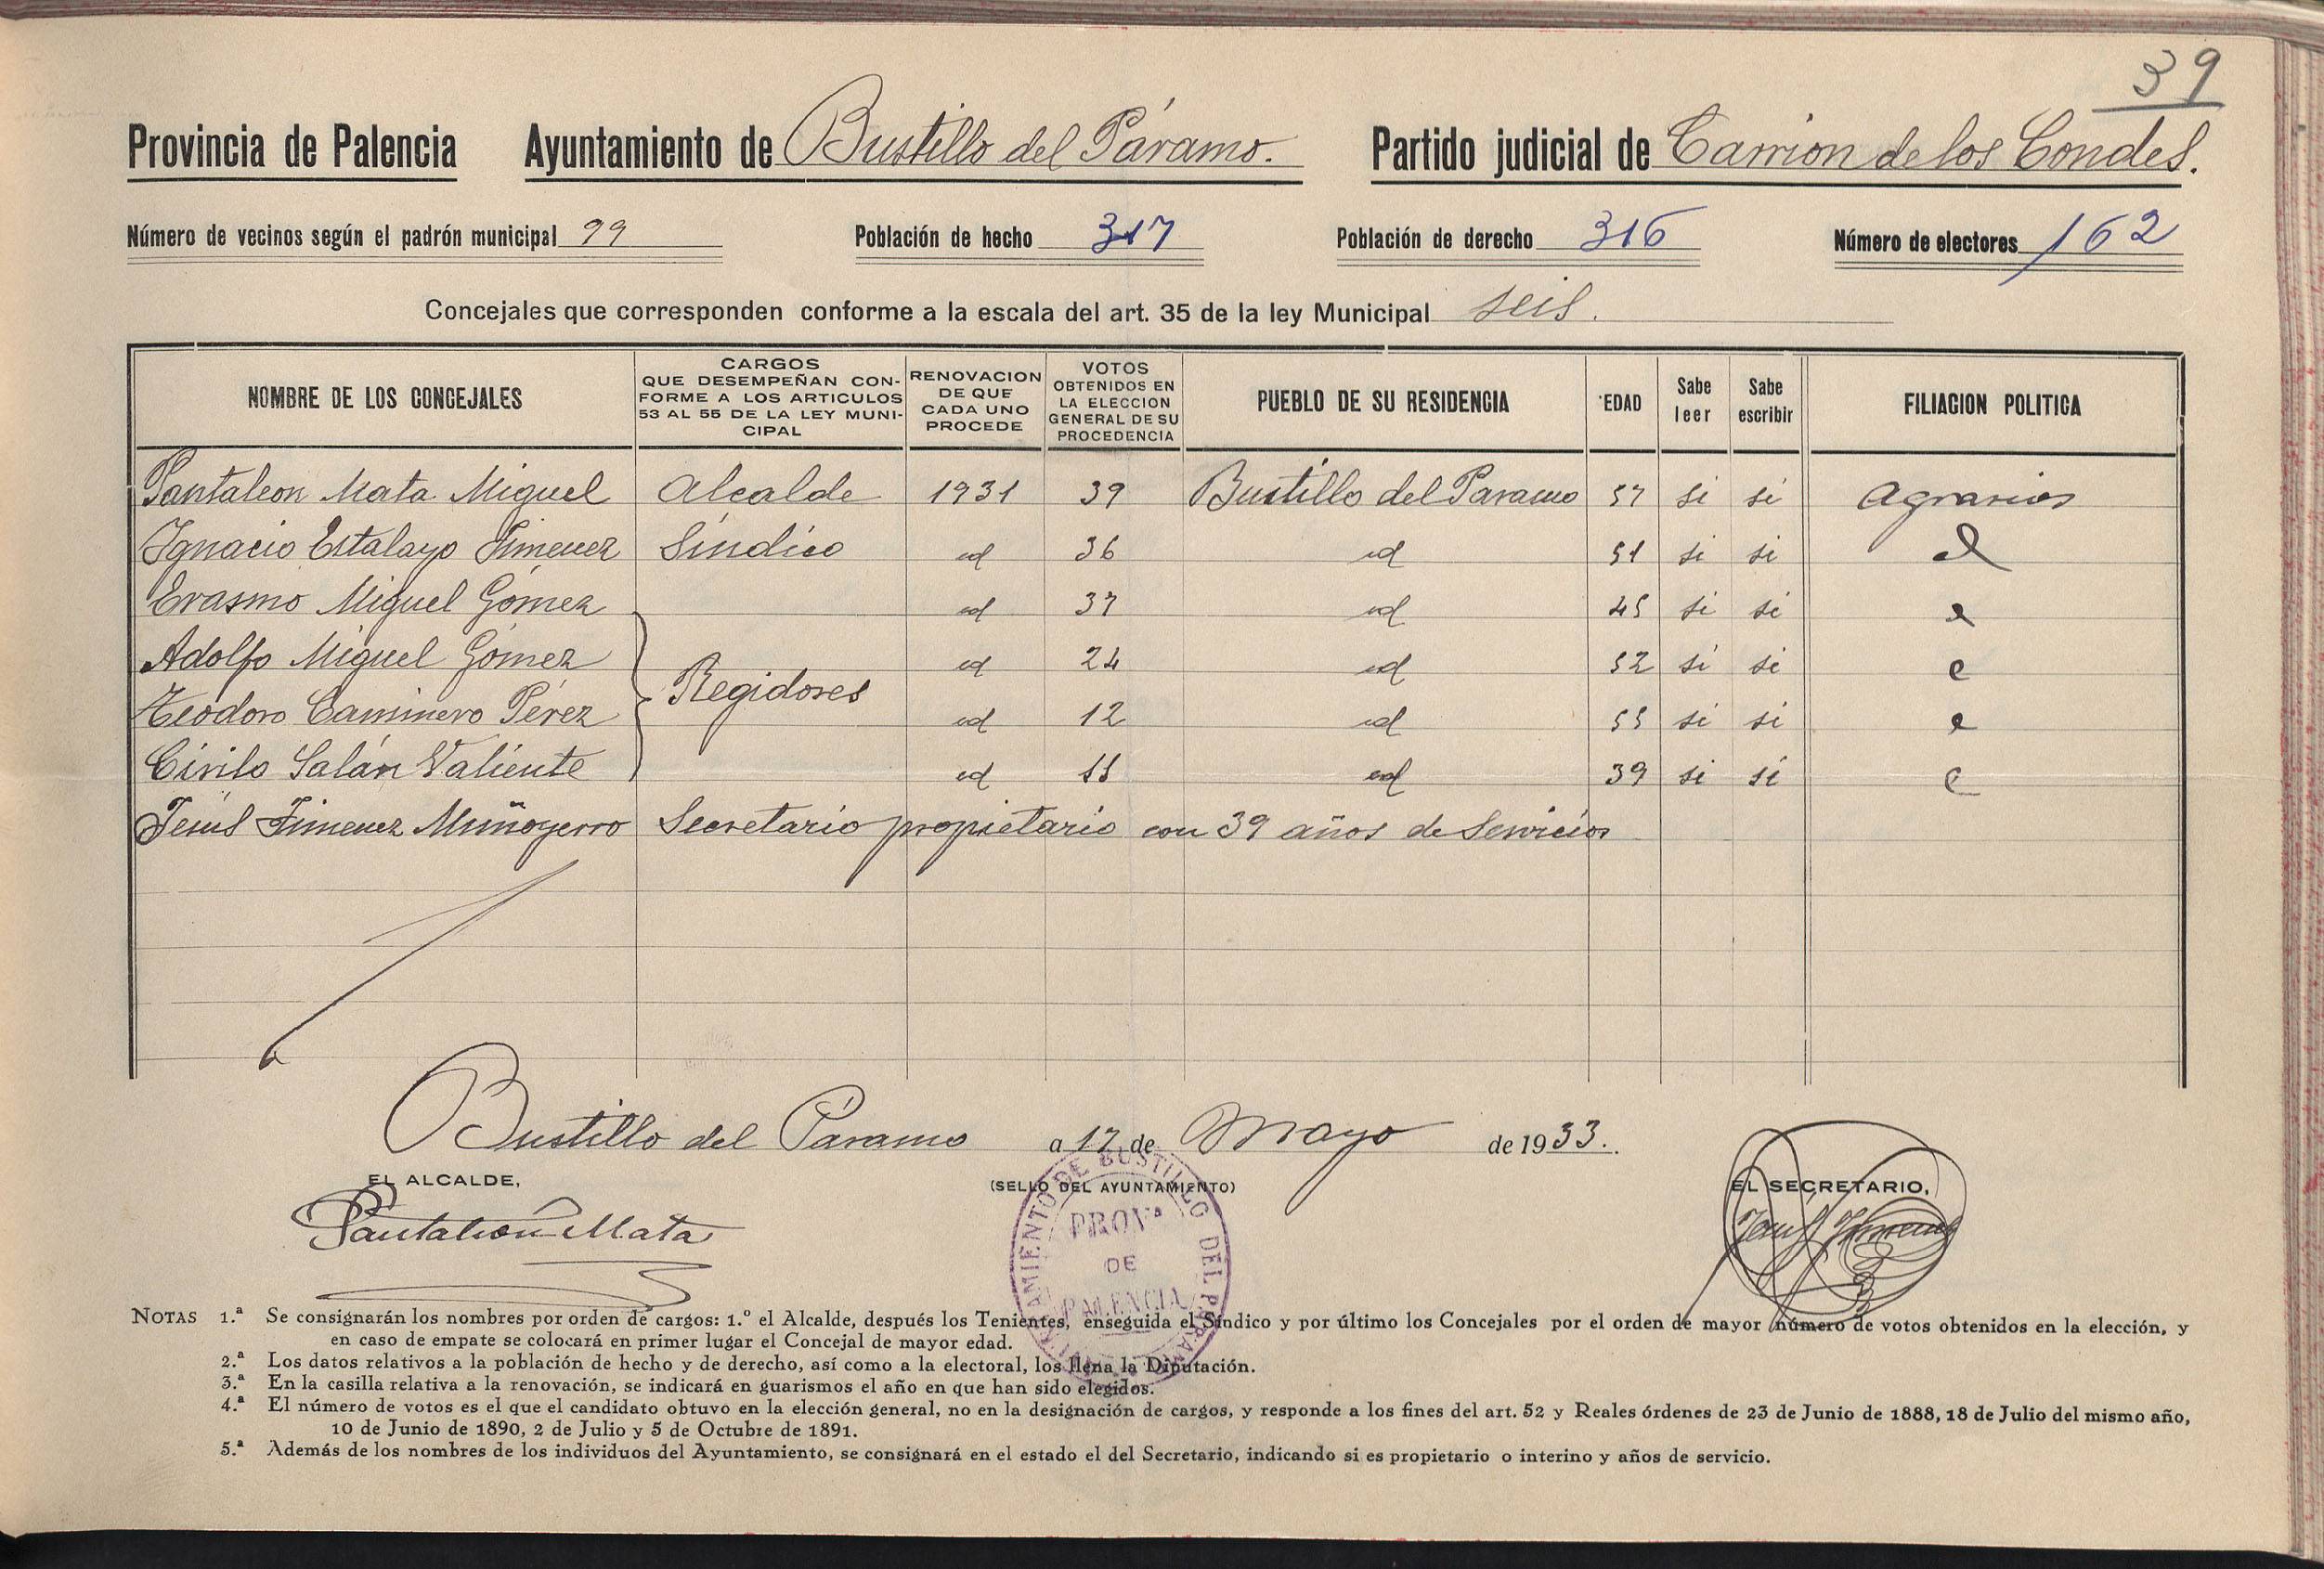 39
Provincia de Palencia Ayuntamiento de Bustillo del Páramo. Partido judicial de Carrion de los Condes.
Número de vecinos según el padrón municipal 99 Población de hecho 317 Población de derecho 316 Número de electores 162
Concejales que corresponden conforme a la escala del art. 35 de la ley Municipal seis.
NOMBRE DE LOS CONCEJALES CARGOS QUE DESEMPEÑAN CONFORME A LOS ARTICULOS 53 AL 55 DE LA LEY MUNICIPAL RENOVACION DE QUE CADA UNO PROCEDE VOTOS OBTENIDOS EN LA ELECCION GENERAL DE SU PROCEDENCIA PUEBLO DE SU RESIDENCIA EDAD Sabe leer Sabe escribir FILIACION POLITICA
Pantaleon Mata Miguel Alcalde 1931 39 Bustillo del Paramo 57 si si agrarios
Ignacio Estalayo Jimenez Síndico id 36 id 51 si si
Erasmo Miguel Gómez id 37 id 45 si si
Adolfo Miguel Gómez id 24 id 52 si si
Regidores
Teodoro Caminero Pérez id 12 id 55 si si
Cirilo Salán Valiente id 11 id 39 si si
Jesús Jimenez Muñoyerro Secretario propietario con 39 años de Servicios
Bustillo del Páramo a 17 de Mayo de 1933.
EL ALCALDE, (SELLO DEL AYUNTAMIENTO) EL SECRETARIO,
Pantaleon Mata
Jesus Jimenez
AYUNTAMIENTO DE BUSTILLO DEL PARAMO
PROVª
DE
PALENCIA
NOTAS 1.ª Se consignarán los nombres por orden de cargos: 1.º el Alcalde, después los Tenientes, enseguida el Síndico y por último los Concejales por el orden de mayor número de votos obtenidos en la elección, y
en caso de empate se colocará en primer lugar el Concejal de mayor edad.
2.ª Los datos relativos a la población de hecho y de derecho, así como a la electoral, los llena la Diputación.
3.ª En la casilla relativa a la renovación, se indicará en guarismos el año en que han sido elegidos.
4.ª El número de votos es el que el candidato obtuvo en la elección general, no en la designación de cargos, y responde a los fines del art. 52 y Reales órdenes de 23 de Junio de 1888, 18 de Julio del mismo año,
10 de Junio de 1890, 2 de Julio y 5 de Octubre de 1891.
5.ª Además de los nombres de los individuos del Ayuntamiento, se consignará en el estado el del Secretario, indicando si es propietario o interino y años de servicio.